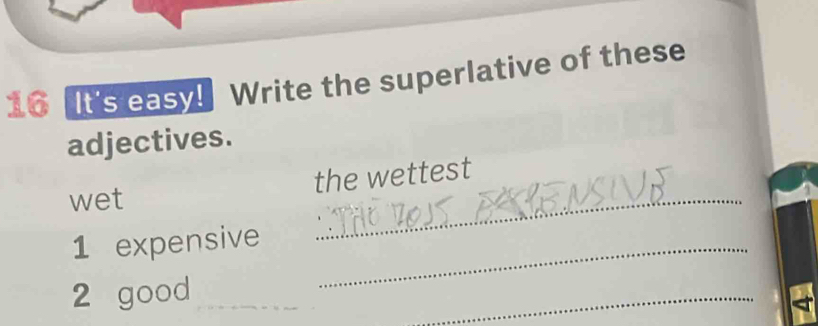 16 It's easy! Write the superlative of these
adjectives.
wet the wettest
1 expensive THE EXPENSIVE
2 good
4